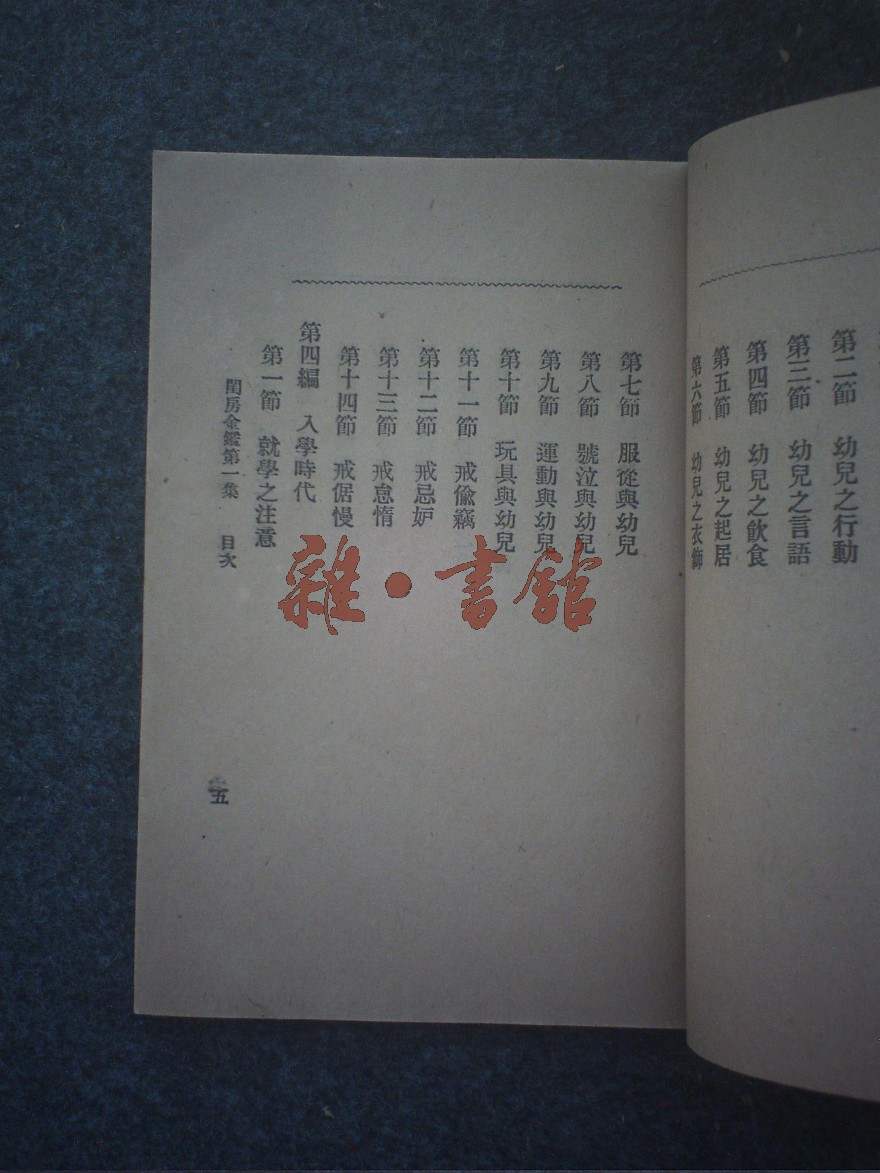 第二節 幼兒之行動
第三節 幼兒之言語
第四節 幼兒之飲食
第五節 幼兒之起居
第六節 幼兒之衣飾
第七節 服從與幼兒
第八節 號泣與幼兒
第九節 運動與幼兒
第十節 玩具與幼兒
第十一節 戒偸竊
第十二節 戒忌妒
第十三節 戒怠惰
第十四節 戒倨慢
第四編 入學時代
第一節 就學之注意
閨房金鑑第一集 目次
五
雜·書館